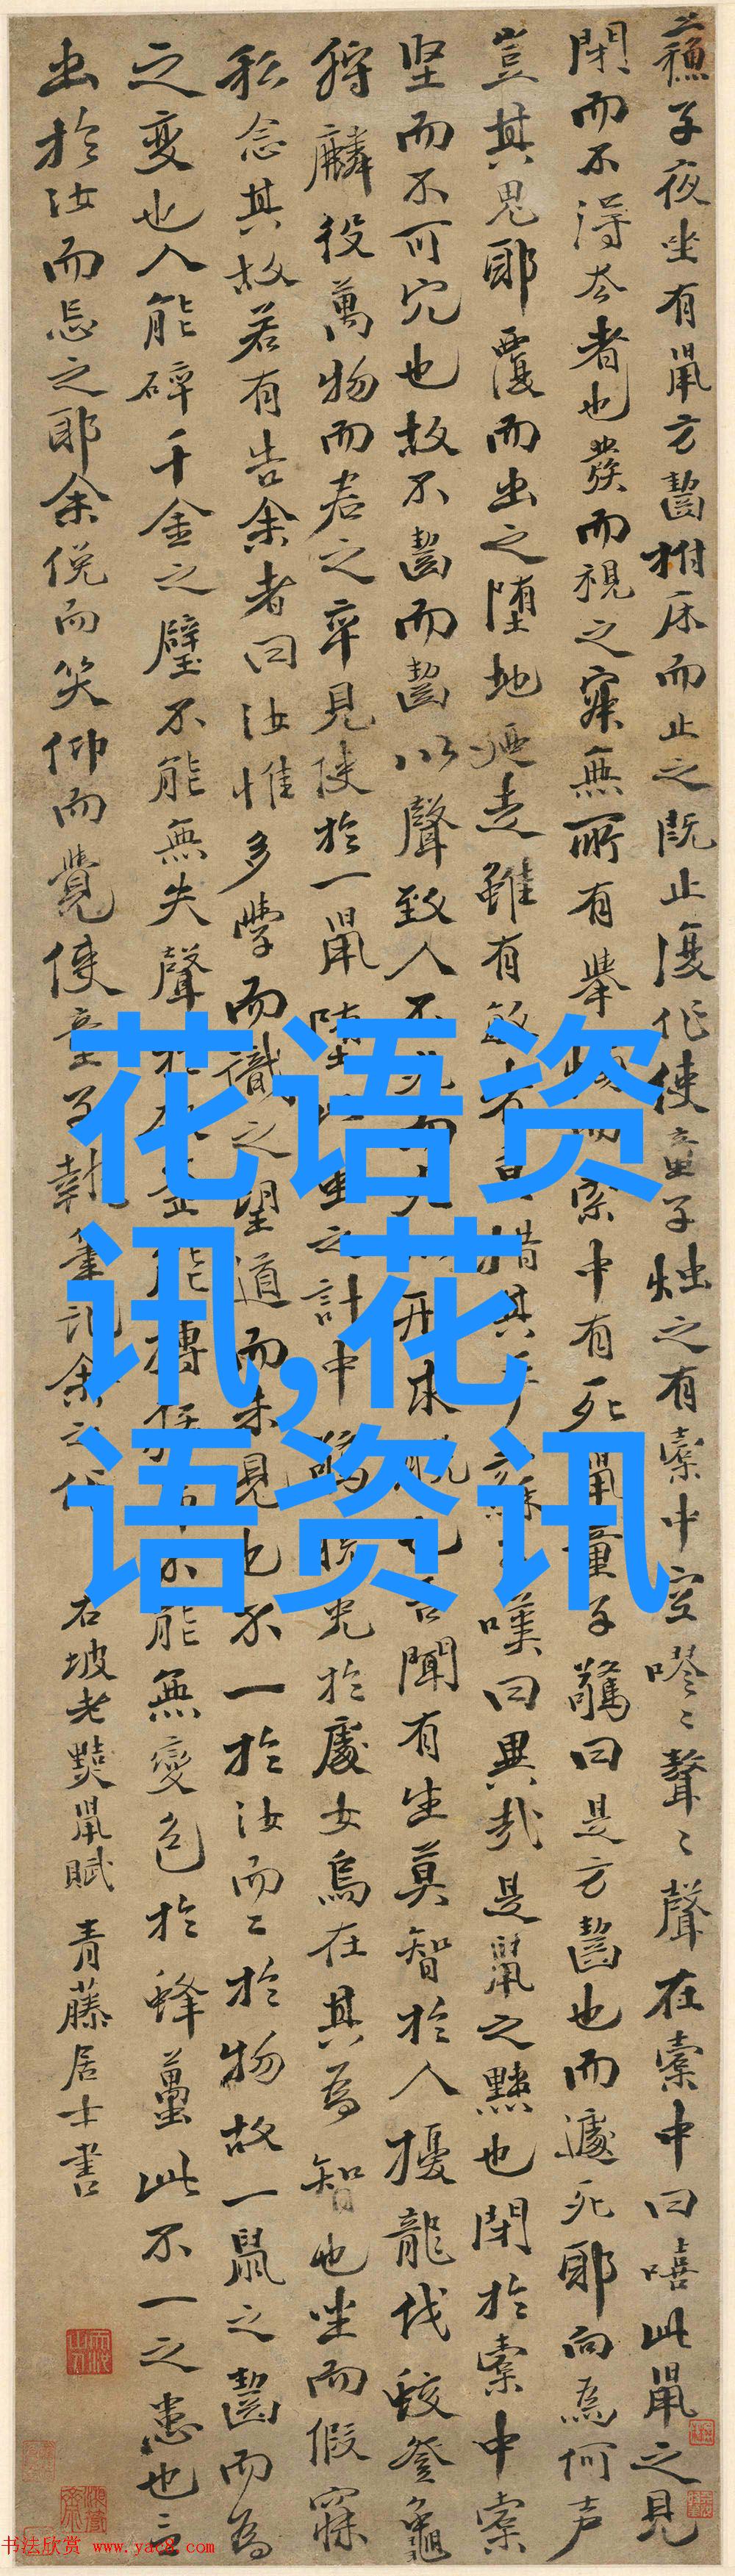 蘇子夜坐有鼠方齧拊床而止之既止復作使童子燭之有橐中空嘐々聱々聲在橐中曰嘻此鼠之見
閉而不得去者也發而視之寂無所有舉燭而索中有死鼠童子驚曰是方齧也而遽死耶向為何声
豈其鬼耶覆而出之堕地迺走雖有敏者莫措其手蘇子嘆曰異哉是鼠之黠也閉於橐中橐
坚而不可穴也故不齧而齧以聲致人不死而死以形求脫也吾聞有生莫智於人擾龍伐蛟登龜
狩麟役萬物而君之卒見使於一鼠堕此蟲之計中驚脫兔於處女烏在其為智也坐而假寐
私念其故若有告余者曰汝惟多學而識之望道而未見也不一於汝而二於物故一鼠之齧而為
之變也人能碎千金之璧不能無失聲於破釜能搏猛虎不能無變色於蜂蠆此不一之患也言
出於汝而忘之耶余俛而笑仰而覺使童子執筆記余之作 右坡老黠鼠賦 青藤居士書
花语资
讯,花
语资讯
书法欣赏 www.yac8.com